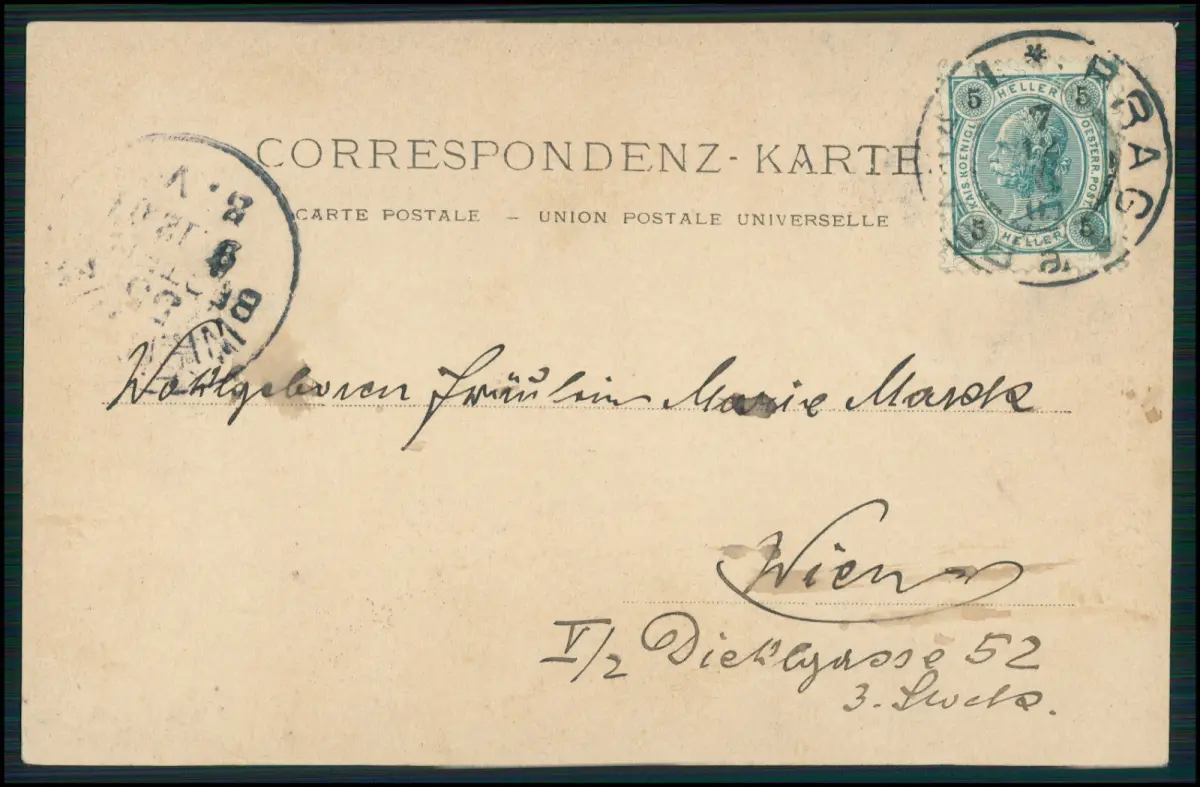 CORRESPONDENZ-KARTE
CARTE POSTALE – UNION POSTALE UNIVERSELLE
5 HELLER 5
KAIS. KOENIGL. OESTERR. POST
5 HELLER 5
PRAG
Wohlgeboren Fräulein Marie
Wien
V/2 Diehlgasse 52
3. Stock.